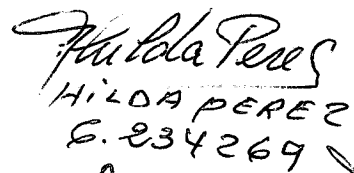 Hilda Perez
HILDA PEREZ
6.234269